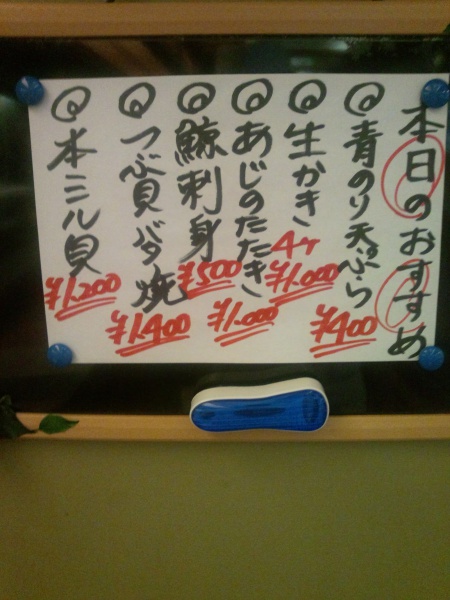 本日のおすすめ
◎青のり天ぷら ¥400
◎生かき 4ケ ¥1.000
◎あじのたたき ¥1.000
◎鯨刺身 ¥500
◎つぶ貝バタ焼 ¥1.400
◎本ミル貝 ¥1.200